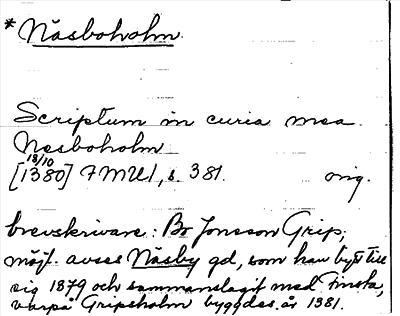 * Näsboholm.
Scriptum in curia mea
Nesboholm
18/10
[1380] FMU 1, s. 381. orig.
brevskrivare: Bo Jonsson Grip;
möjl. avses Näsby gd, som han bytt till
sig 1379 och sammanslagit med Finsta,
varpå Gripsholm byggdes år 1381.